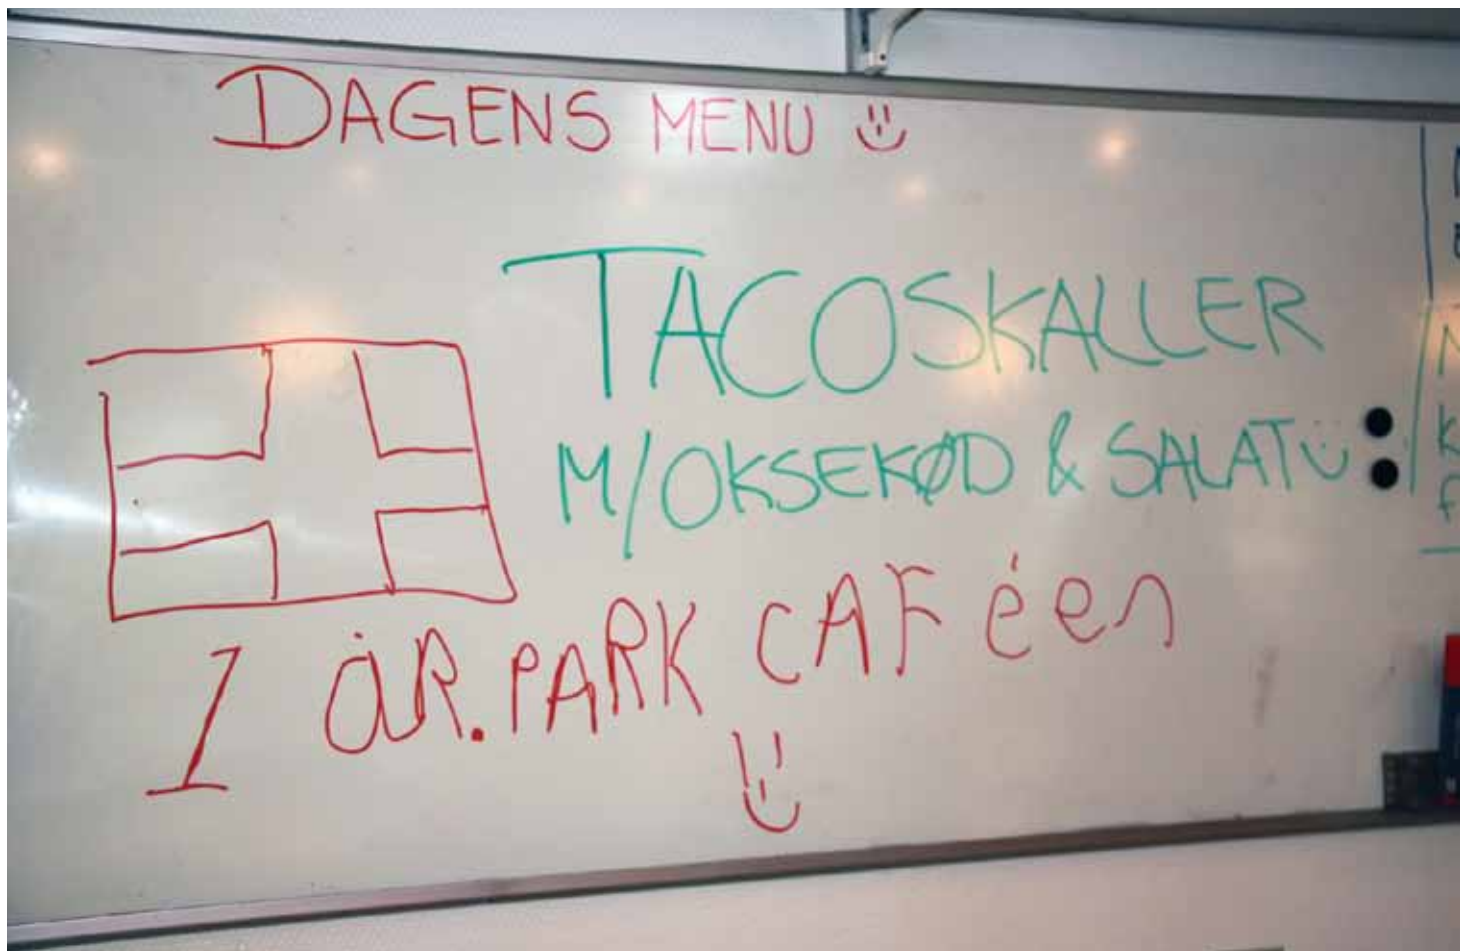 DAGENS MENU
TACOSKALLER
M/OKSEKØD & SALAT
I ÅR.PARK CAFéen